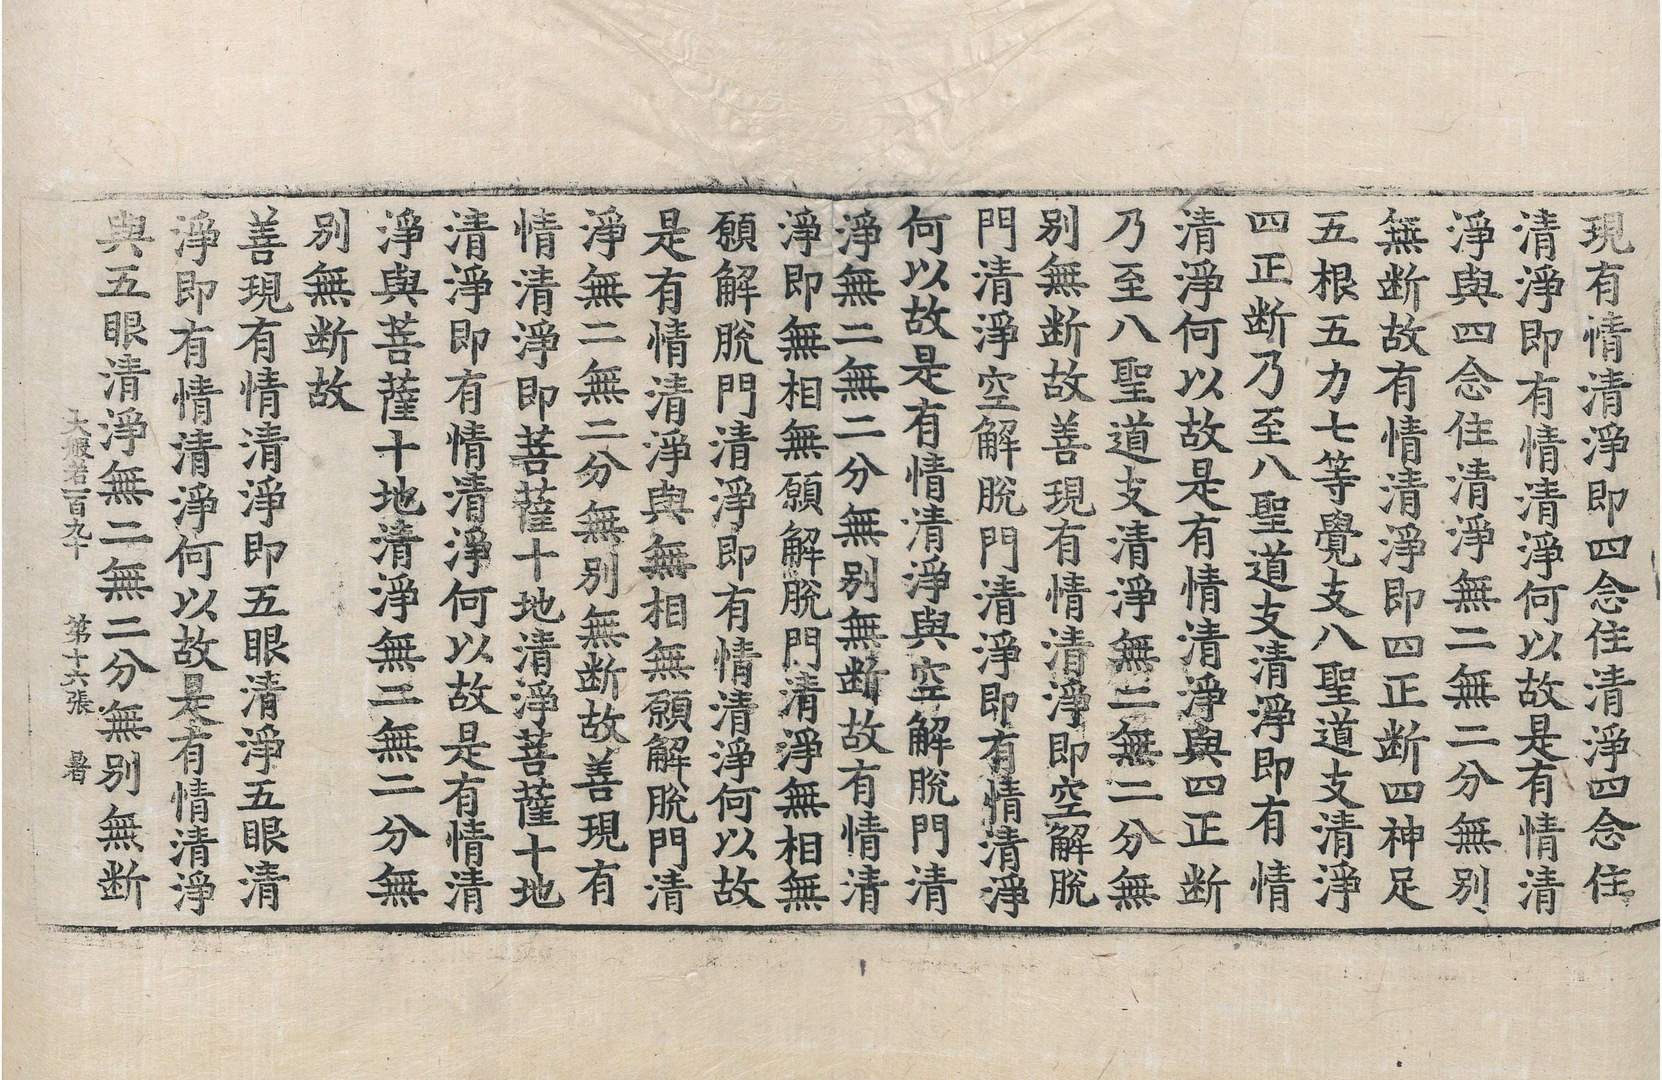 現有情清淨即四念住清淨四念住
清淨即有情清淨何以故是有情清
淨與四念住清淨無二無二分無別
無断故有情清淨即四正断四神足
五根五力七等覺支八聖道支清淨
四正断乃至八聖道支清淨即有情
清淨何以故是有情清淨與四正断
乃至八聖道支清淨無二無二分無
別無断故善現有情清淨即空解脫
門清淨空解脫門清淨即有情清淨
何以故是有情清淨與空解脫門清
淨無二無二分無別無断故有情清
淨即無相無願解脫門清淨無相無
願解脫門清淨即有情清淨何以故
是有情清淨與無相無願解脫門清
淨無二無二分無別無断故善現有
情清淨即菩薩十地清淨菩薩十地
清淨即有情清淨何以故是有情清
淨與菩薩十地清淨無二無二分無
別無断故
善現有情清淨即五眼清淨五眼清
淨即有情清淨何以故是有情清淨
與五眼清淨無二無二分無別無断
大般若一百九十 第十六張 暑